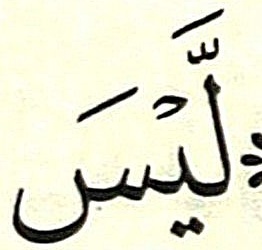 لَّيْسَ